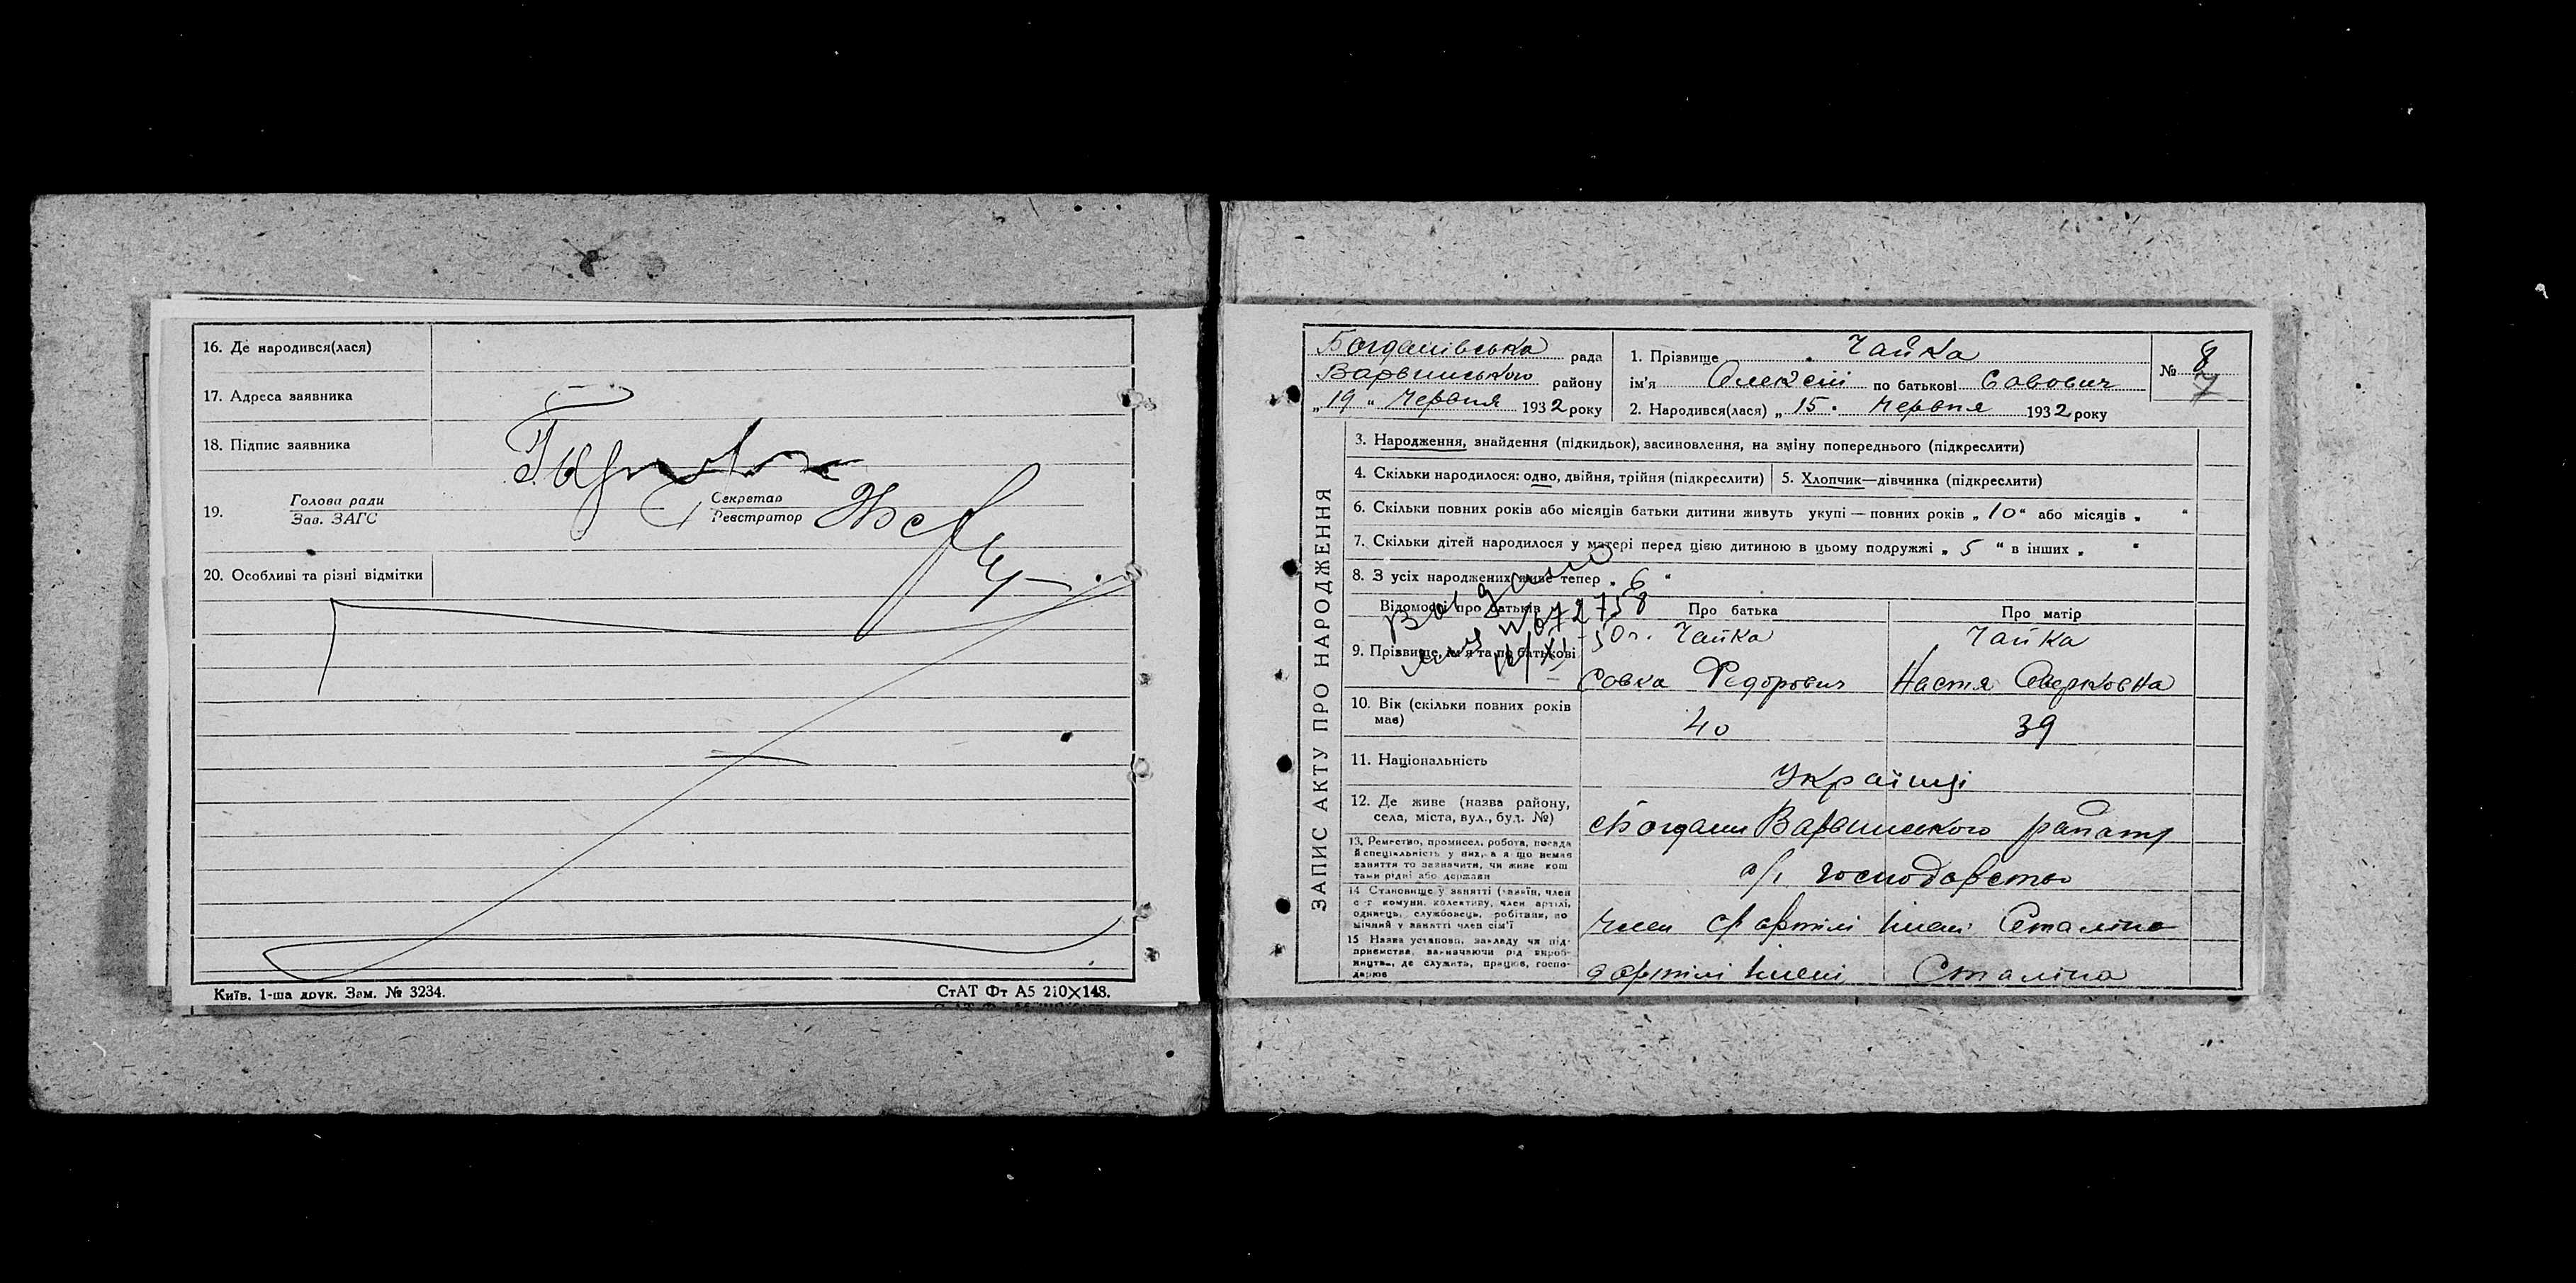 16. Де народився(лася)
17. Адреса заявника
18. Підпис заявника
19. Голова ради
Зав. ЗАГС
Секретар
Реєстратор
20. Особливі та різні відмітки
Київ. 1-ша друк. Зам. № 3234.
СтАТ Фт А5 210×148.
ЗАПИС АКТУ ПРО НАРОДЖЕННЯ
Богданівська рада
Варвинського району
„19“ Червня 1932 року
1. Прізвище Чайка
ім'я Олексій по батькові Савович
2. Народився(лася) „15. Червня 1932 року
№ 8
7
3. Народження, знайдення (підкидьок), засиновлення, на зміну попереднього (підкреслити)
4. Скільки народилося: одно, двійня, трійня (підкреслити)
5. Хлопчик—дівчинка (підкреслити)
6. Скільки повних років або місяців батьки дитини живуть укупі — повних років „10“ або місяців „ “
7. Скільки дітей народилося у матері перед цією дитиною в цьому подружжі „5“ в інших „ “
8. З усіх народжених живе тепер „6“
Відомості про батьків
Про батька
Про матір
672758
50 г.
9. Прізвище, ім'я та по батькові
Чайка
Савка Федорович
Чайка
Настя Оверковна
10. Вік (скільки повних років має)
40
39
11. Національність
Українці
12. Де живе (назва району, села, міста, вул., буд. №)
с Богдани Варвинського району
13. Ремество, промисел, робота, посада й спеціяльність у них, а я що немає заняття то зазначити, чи живе коштами рідні або держави
с/г господарство
14 Становище у занятті (хазяїн, член с-г комуни, колективу, член артілі, одинець, службовець, робітник, помічний у занятті член сім'ї
Член с/г артілі імені Сталіна
15 Назва установи, закладу чи підприємства, зазначаючи рід виробництва, де служить, працює, господарює
в артілі імені Сталіна